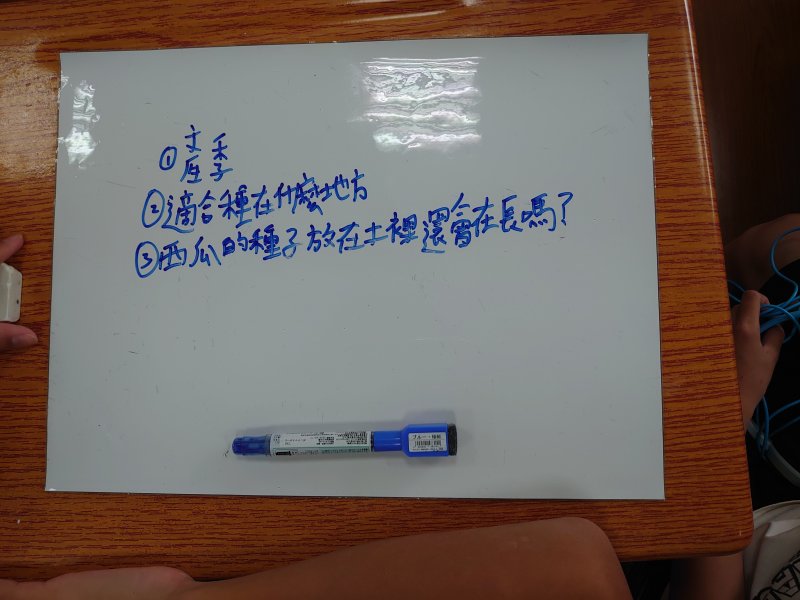 ①產季
②適合種在什麼地方
③西瓜的種子放在土裡還會在長嗎？